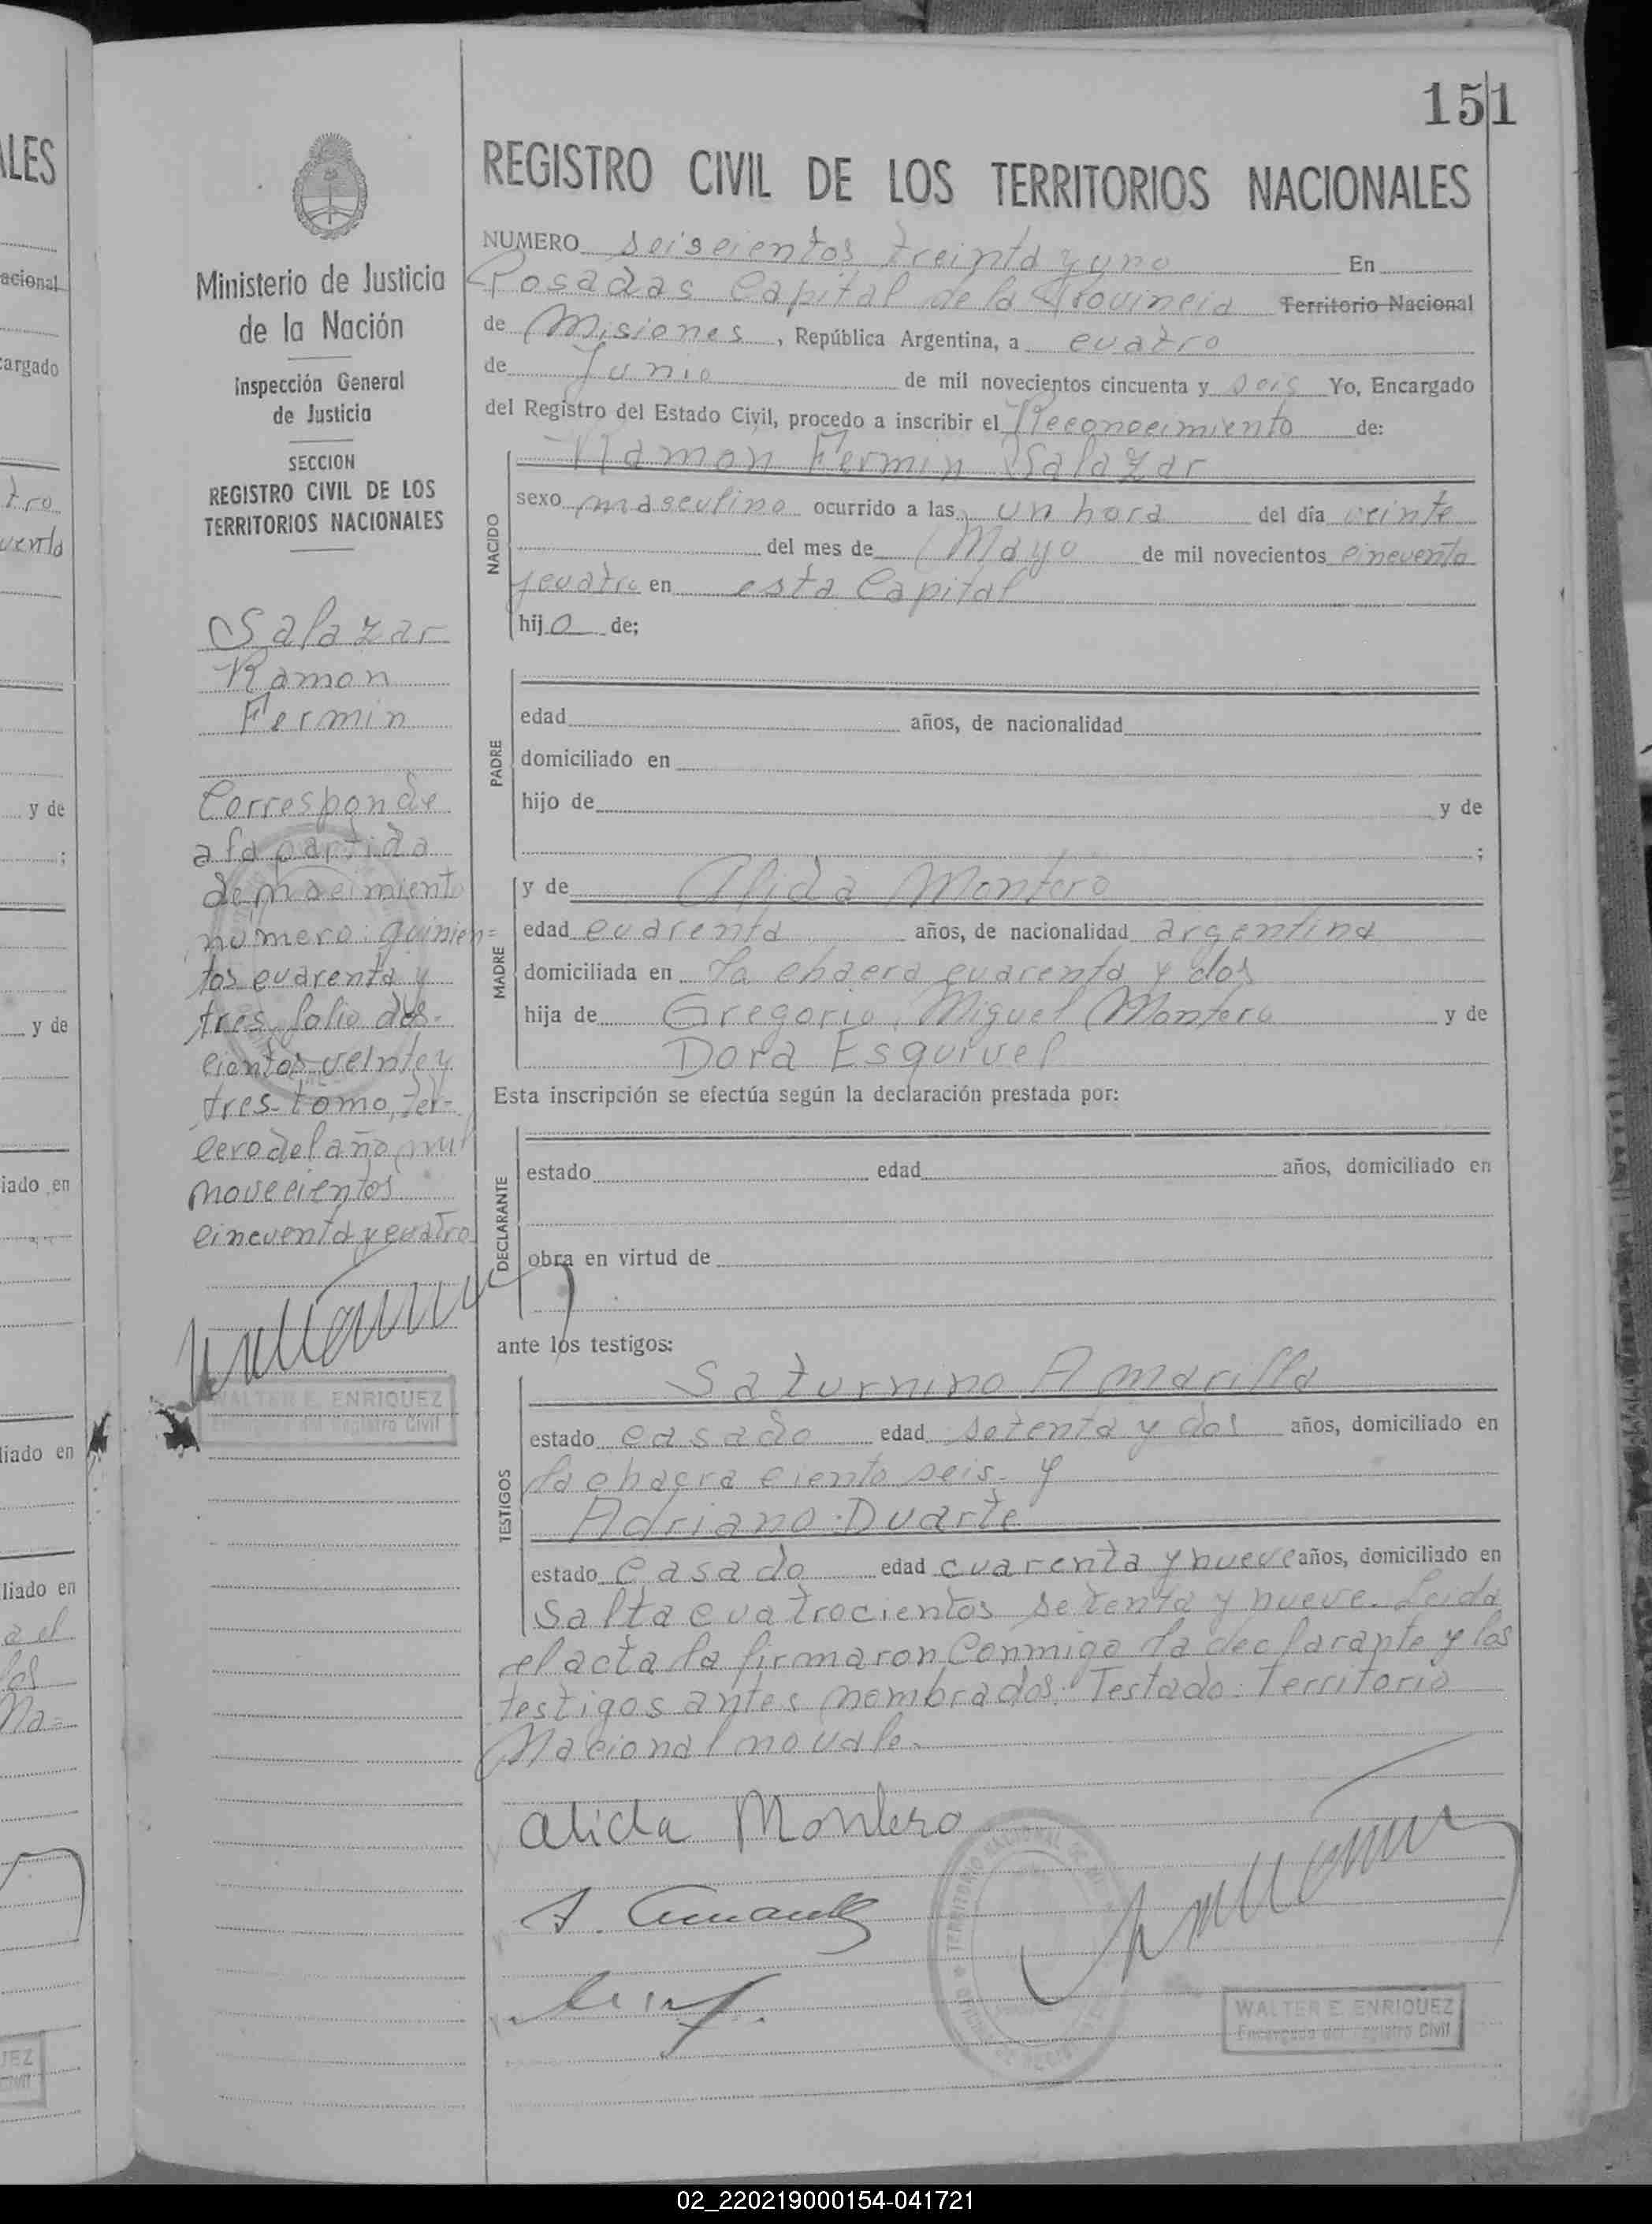 151
REGISTRO CIVIL DE LOS TERRITORIOS NACIONALES
Ministerio de Justicia
de la Nación
Inspección General
de Justicia
SECCION
REGISTRO CIVIL DE LOS
TERRITORIOS NACIONALES
Salazar
Ramon
Fermin
Corresponde
a la partida
de nacimiento
número: quinien=
tos cuarenta y
tres folio dos-
cientos veinte y
tres tomo ter-
cero del año mil
novecientos
cincuenta y cuatro
WALTER E. ENRIQUEZ
Encargado del Registro Civil
NUMERO seiscientos treinta y uno En
Posadas Capital de la Provincia Territorio Nacional
de Misiones, República Argentina, a cuatro
de Junio de mil novecientos cincuenta y seis Yo, Encargado
del Registro del Estado Civil, procedo a inscribir el Reconocimiento de:
NACIDO
Ramon Fermin Salazar
sexo masculino ocurrido a las un hora del día veinte
del mes de Mayo de mil novecientos cincuenta
y cuatro en esta Capital
hijo de;
PADRE
edad años, de nacionalidad
domiciliado en
hijo de y de
;
MADRE
y de Alida Montero
edad cuarenta años, de nacionalidad argentina
domiciliada en la chacra cuarenta y dos
hija de Gregorio Miguel Montero y de
Dora Esquivel
Esta inscripción se efectúa según la declaración prestada por:
DECLARANTE
estado edad años, domiciliado en
obra en virtud de
ante los testigos:
TESTIGOS
Saturnino Amarilla
estado casado edad setenta y dos años, domiciliado en
la chacra ciento seis y
Adriano Duarte
estado casado edad cuarenta y nueve años, domiciliado en
Salta cuatrocientos setenta y nueve. Leida
el acta la firmaron conmigo la declarante y los
testigos antes nombrados. Testado: Territorio
Nacional no vale.
alida Montero
WALTER E. ENRIQUEZ
Encargado del Registro Civil
02_220219000154-041721